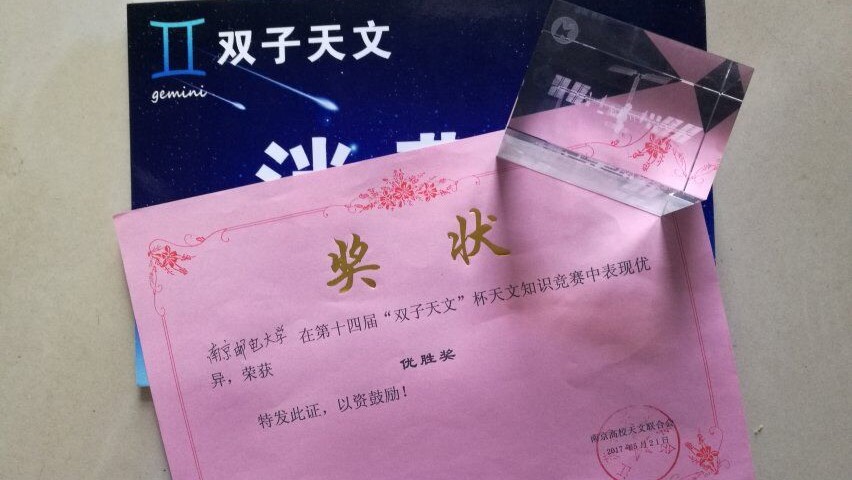 双子天文
gemini
奖状
南京邮电大学 在第十四届“双子天文”杯天文知识竞赛中表现优
异，荣获 优胜奖
特发此证，以资鼓励！
南京高校天文联合会
2017年5月21日